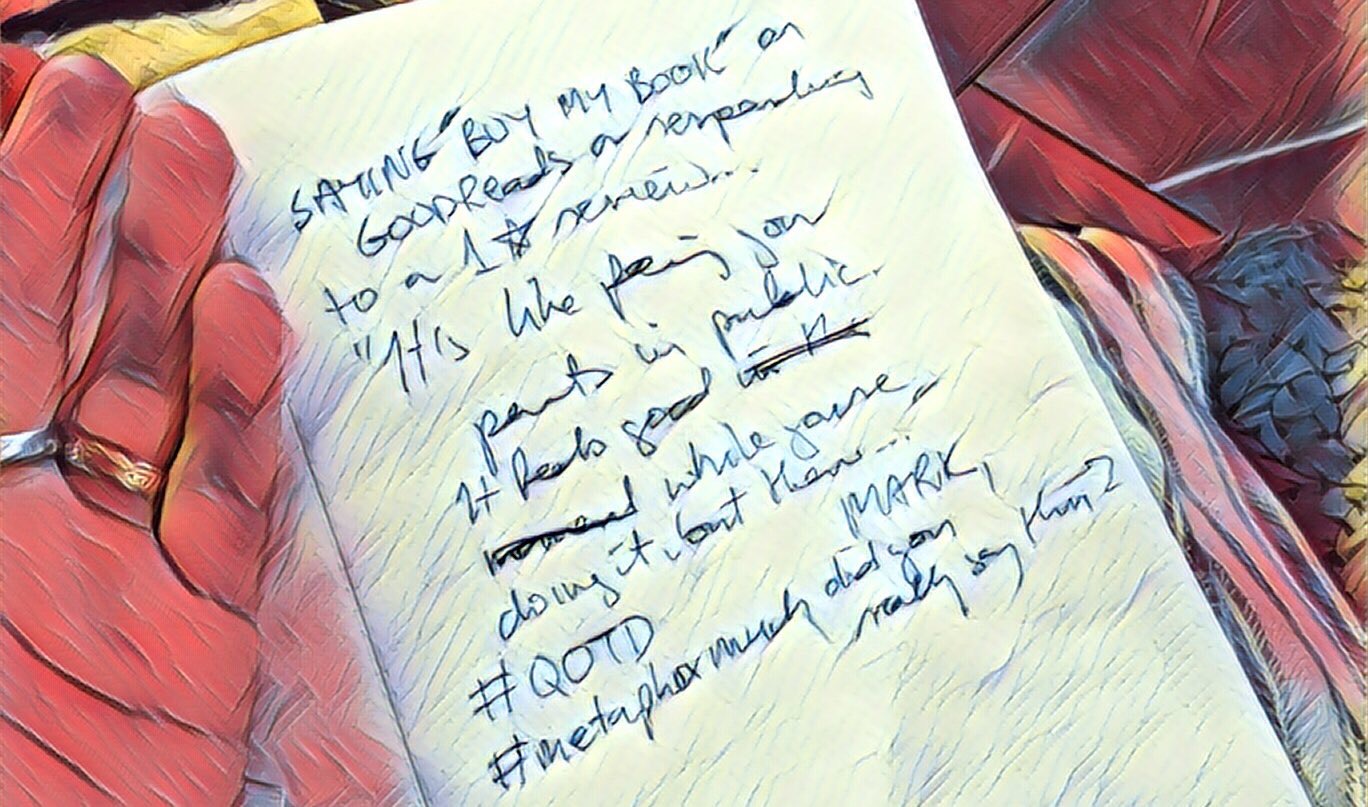 SAYING "BUY MY BOOK" on
GOODReads or responding
to a 1☆ review...
"It's like peeing your
pants in public.
It feels good
while you're
doing it, but then...
#QOTD
#metaphormuch
MARK,
did you
really say